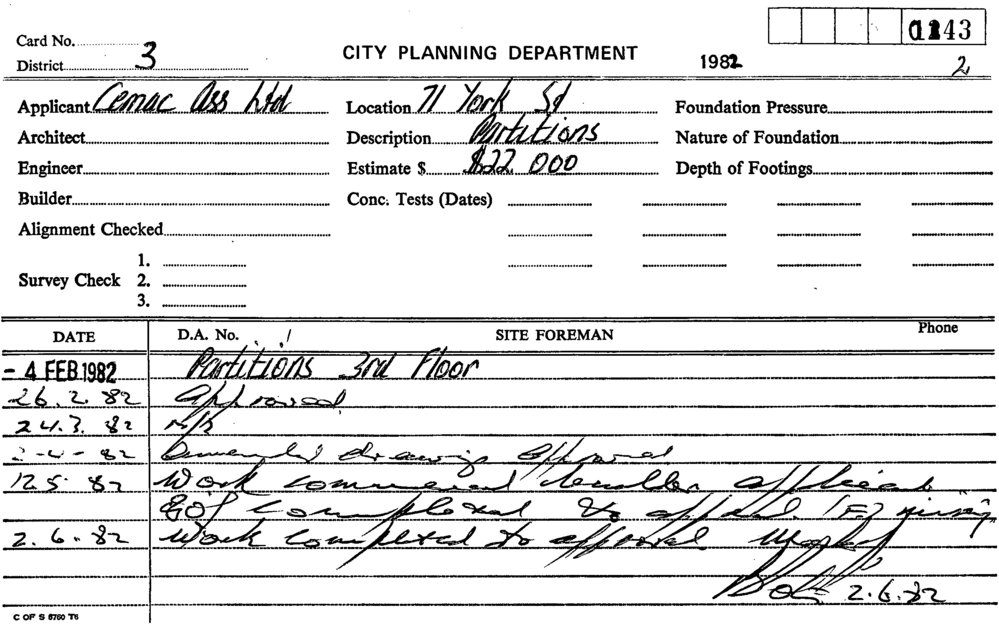 Card No.
District 3
CITY PLANNING DEPARTMENT
1982
43
2
Applicant Cemac Ass Ltd
Location 71 York St
Foundation Pressure
Architect
Description Partitions
Nature of Foundation
Engineer
Estimate $ $22 000
Depth of Footings
Builder
Conc. Tests (Dates)
Alignment Checked
1.
Survey Check 2.
3.
DATE D.A. No. SITE FOREMAN Phone
- 4 FEB 1982 Partitions 3rd Floor
26. 2. 82 Approved
24.3. 82
2-4-82 Amended drawings approved
12.5. 82 Work commenced
80% completed to
2. 6. 82 Work completed to approval
2.6.82
C OF S 8760 T6